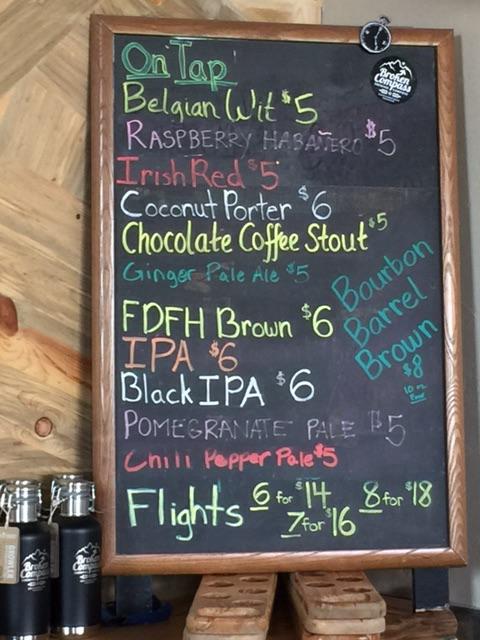 On Tap
Broken
Compass
Belgian Wit $5
RASPBERRY HABAÑERO $5
Irish Red $5
Coconut Porter $6
Chocolate Coffee Stout $5
Ginger Pale Ale $5
Bourbon
Barrel
Brown
$8
10 oz
Pour
FDFH Brown $6
IPA $6
Black IPA $6
POMEGRANATE PALE $5
Chili Pepper Pale $5
Flights 6 for $14 8 for $18
7 for $16
Broken
Compass
Broken
Compass
GROWLER